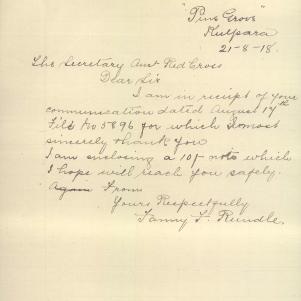 "Pine Grove"
Kulpara
21-8-18.
The Secretary Aust Red Cross
Dear Sir
I am in receipt of your
communication dated August 17th
File No 5896 for which I most
sincerely thank you
I am enclosing a 10/- note which
I hope will reach you safely.
Again From
Yours Respectfully
Fanny F. Rundle.